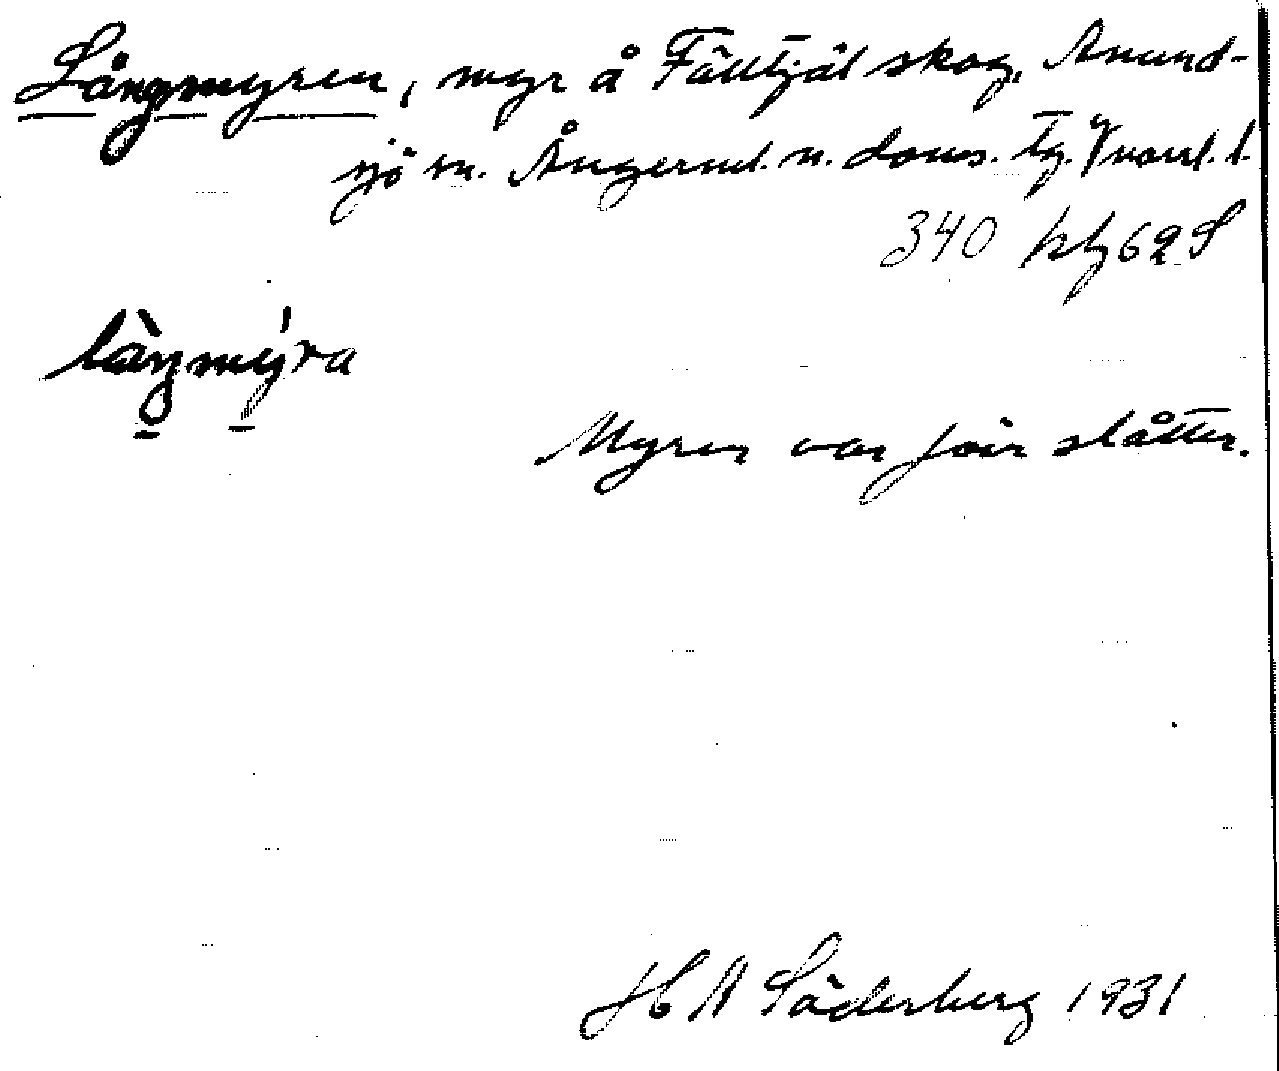 Långmyren, myr å Fälltjäl skog, Anund-
sjö sn. Ångerml. n. doms. Tg. Ynorrl. l.
340 kbl 62 S
làŋmýra
Myren var förr slåtter.
H A Söderberg 1931